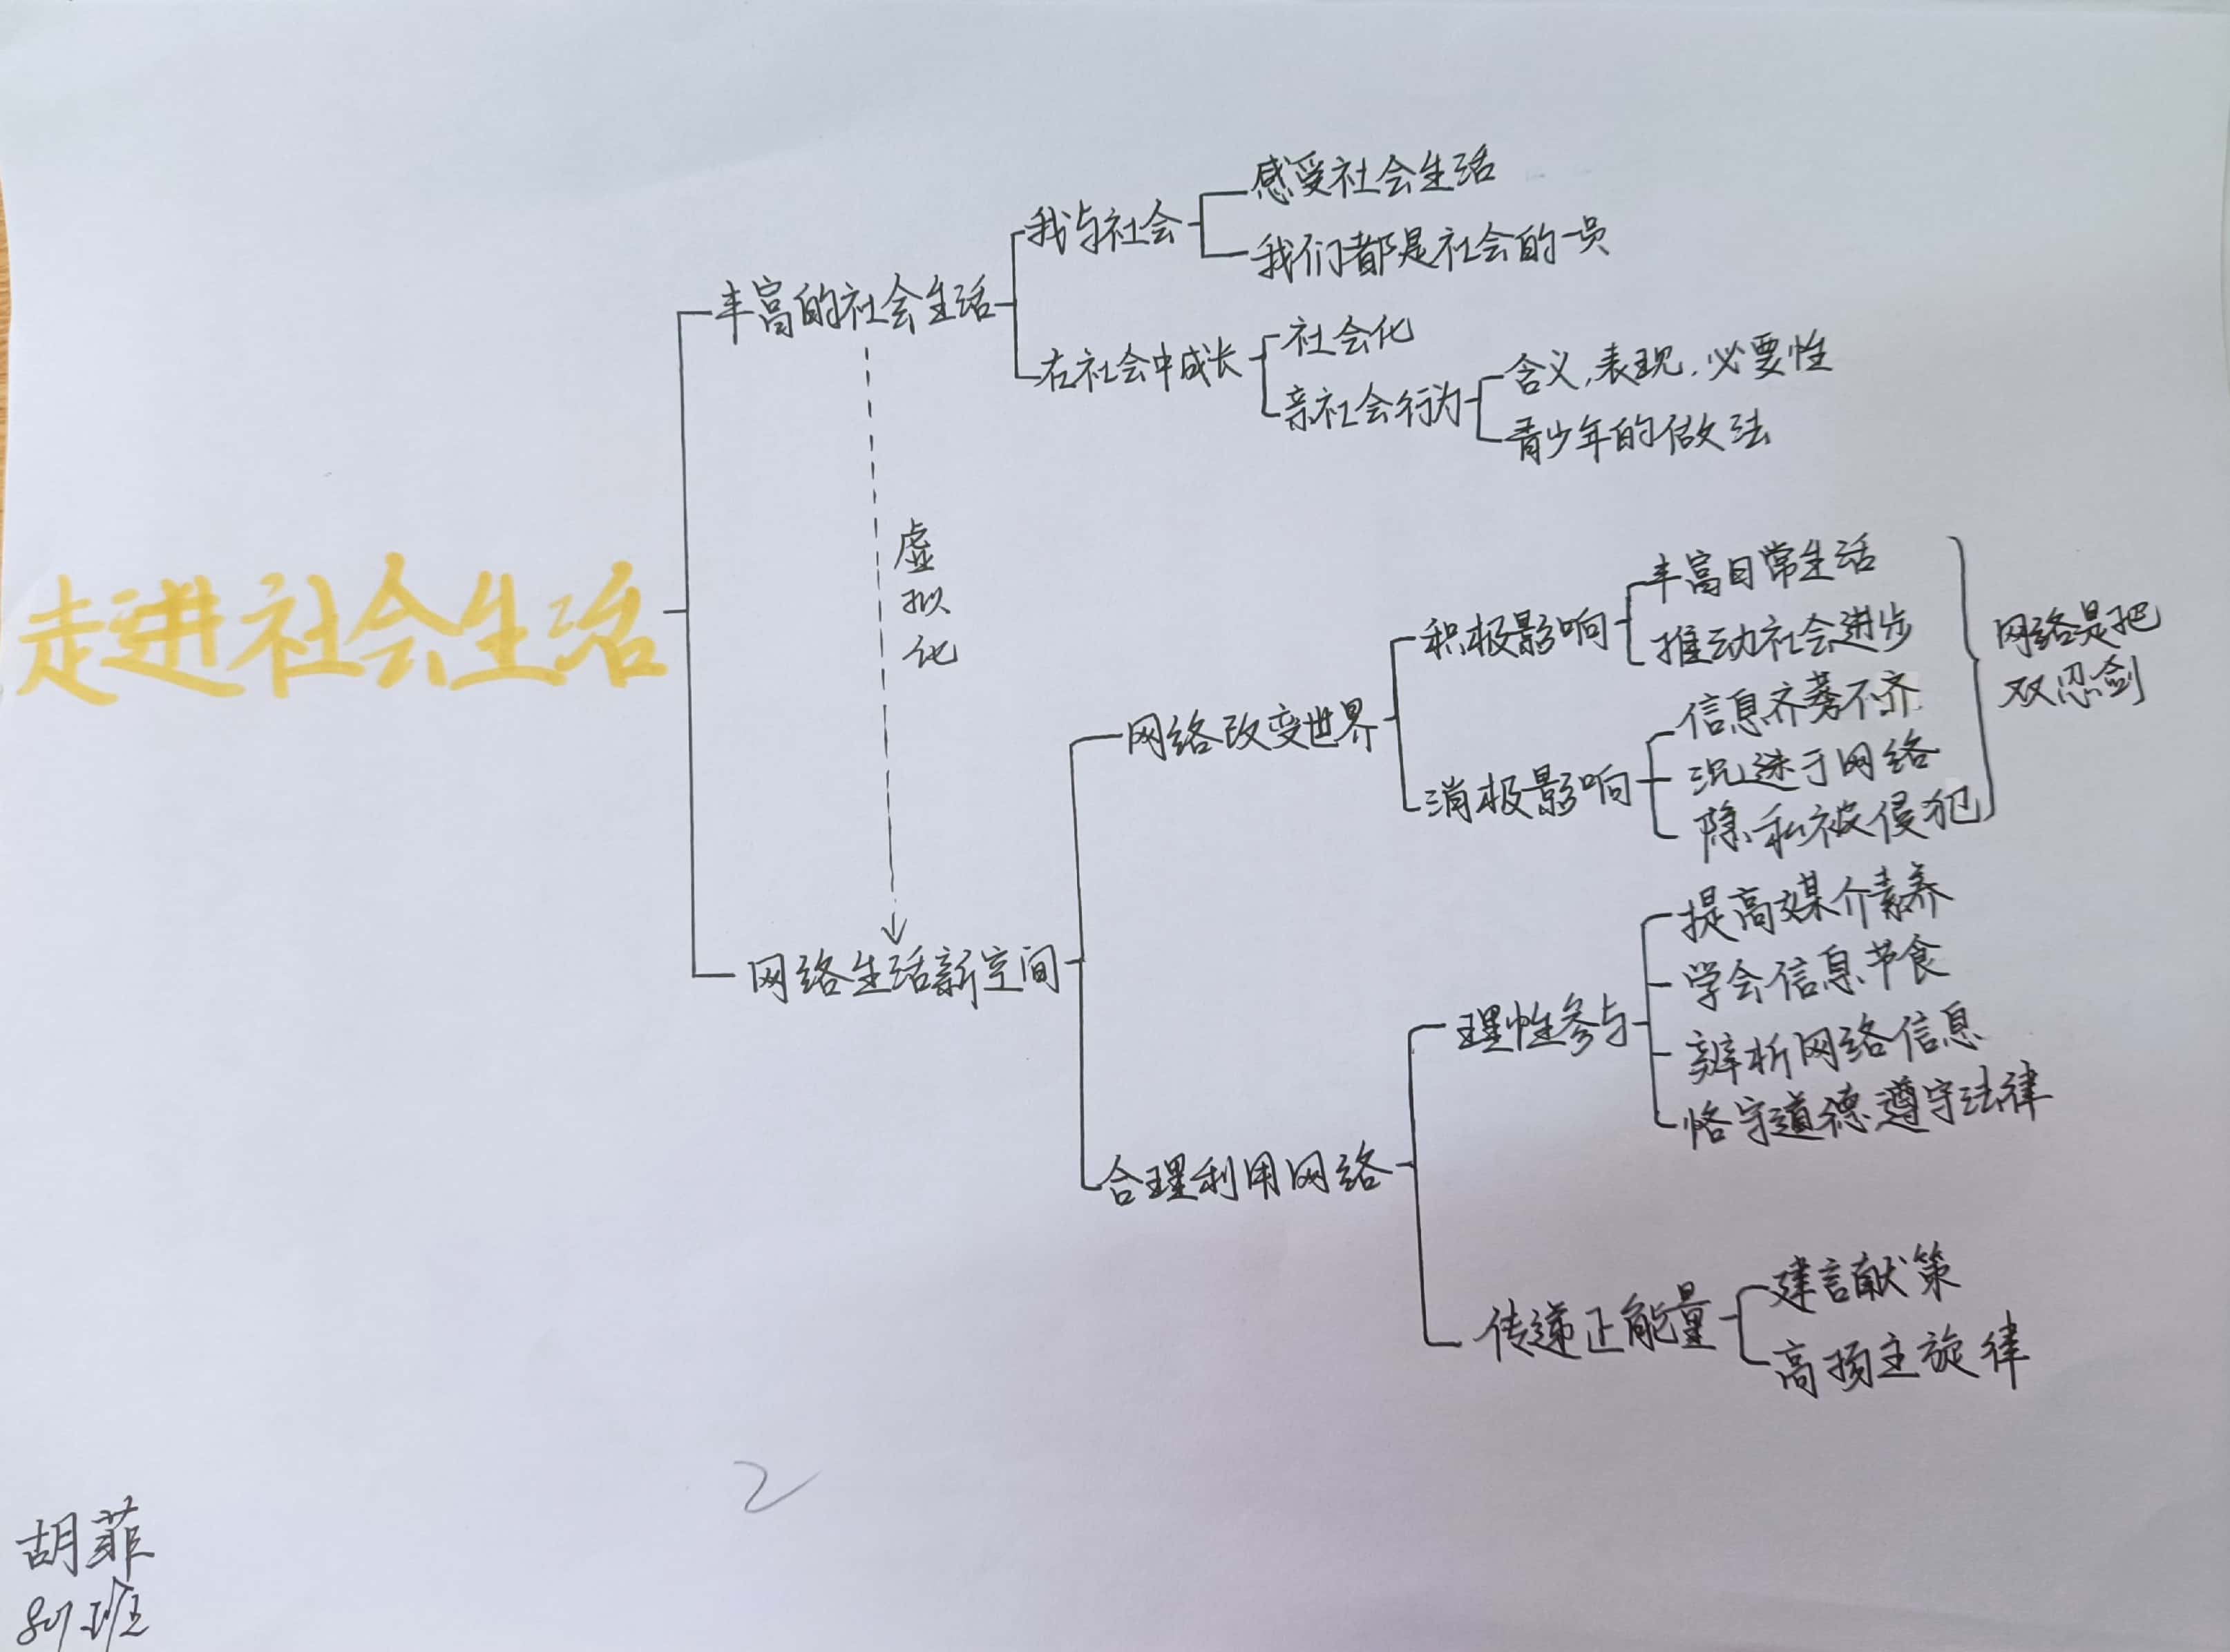 走进社会生活
丰富的社会生活
我与社会
感受社会生活
我们都是社会的一员
在社会中成长
社会化
亲社会行为
含义,表现,必要性
青少年的做法
虚拟化
网络生活新空间
网络改变世界
积极影响
丰富日常生活
推动社会进步
消极影响
信息齐莠不齐
沉迷于网络
隐私被侵犯
网络是把
双忍剑
合理利用网络
理性参与
提高媒介素养
学会信息节食
辨析网络信息
恪守道德,遵守法律
传递正能量
建言献策
高扬主旋律
2
胡菲